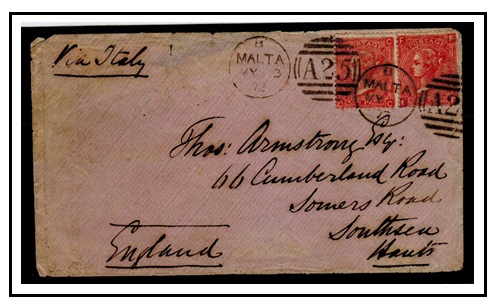 Via Italy
B
MALTA
MY 3
72
A25
POSTAGE
B
MALTA
MY
A2
Thos: Armstrong Esq:
66 Cumberland Road
Somers Road
Southsea
Hants
England